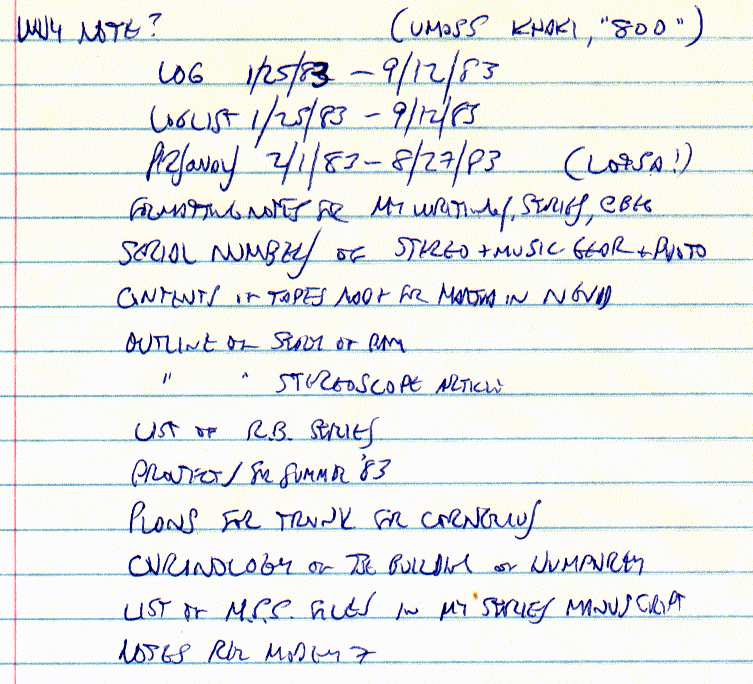 WHY NOTE? (UMASS KHAKI, "800")
LOG 1/25/83 – 9/12/83
LOGLIST 1/25/83 – 9/12/83
2/1/83 – 8/27/83 (LOTSA!)
FORMATTING NOTES FOR MY WRITINGS, SERIES,
SERIAL NUMBERS OF STEREO + MUSIC GEAR + PHOTO
CONTENTS OF TAPES MADE FOR MARTHA IN
OUTLINE OF STORY OF
" " STEREOSCOPE ARTICLE
LIST OF R.B. SERIES
PROJECTS FOR SUMMER '83
PLANS FOR TRUNK FOR CORNELIUS
CHRONOLOGY OF THE BUILDING OF HUMPHREY
LIST OF M.S.S. FILES IN MY SERIES MANUSCRIPT
NOTES FOR